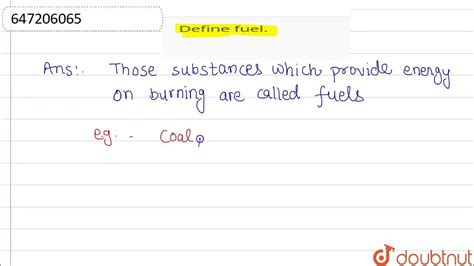 647206065
Define fuel.
Ans:- Those substances which provide energy
on burning are called fuels
e.g. - Coal,
doubtnut